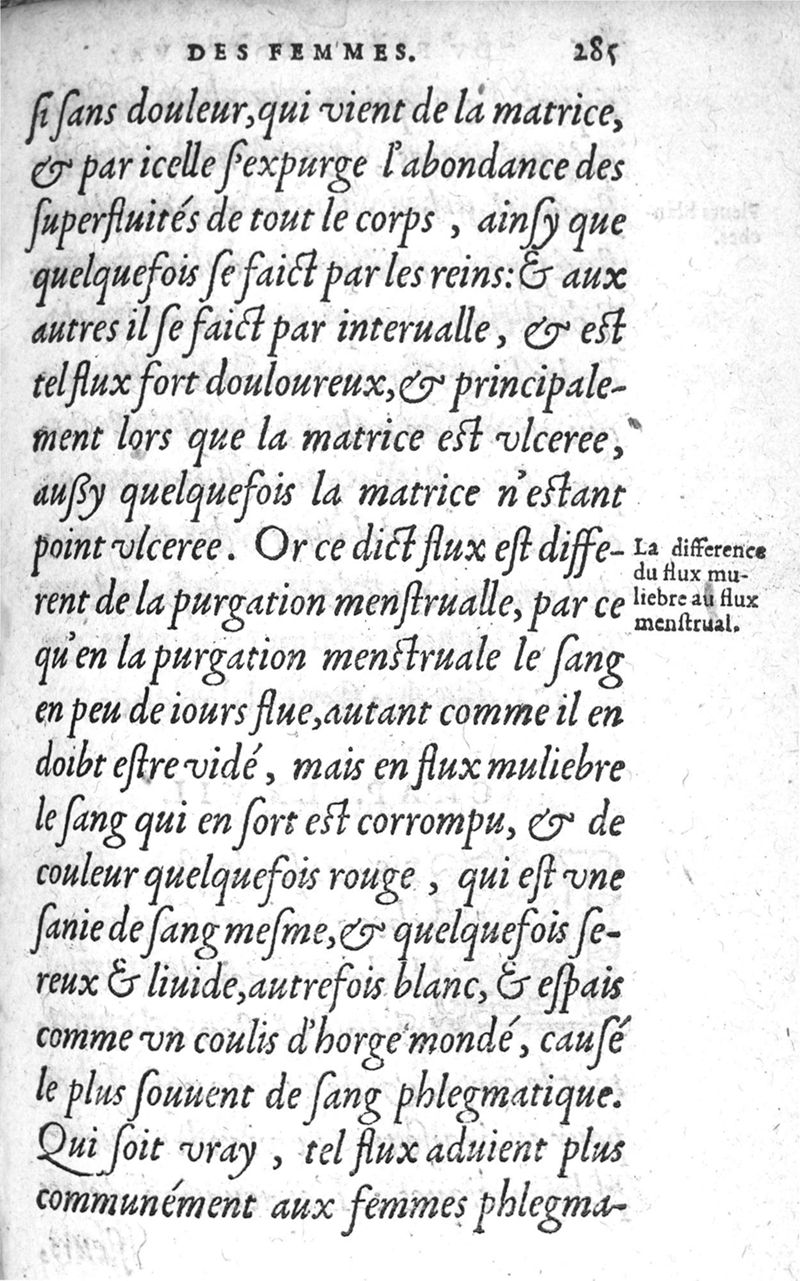 DES FEMMES. 285
ſi ſans douleur,qui vient de la matrice,
& par icelle ſ'expurge l'abondance des
ſuperfluités de tout le corps , ainſy que
quelquefois ſe faict par les reins: & aux
autres il ſe faict par interualle , & eſt
tel flux fort douloureux,& principale-
ment lors que la matrice eſt vlceree,
auſſy quelquefois la matrice n'eſtant
point vlceree. Or ce dict flux eſt diffe-
rent de la purgation menſtrualle, par ce
qu'en la purgation menſtruale le ſang
en peu de iours flue,autant comme il en
doibt eſtre vidé , mais en flux muliebre
le ſang qui en ſort eſt corrompu, & de
couleur quelquefois rouge , qui eſt vne
ſanie de ſang meſme,& quelquefois ſe-
reux & liuide,autrefois blanc, & eſpais
comme vn coulis d'horge mondé, cauſé
le plus ſouuent de ſang phlegmatique.
Qui ſoit vray , tel flux aduient plus
communément aux femmes phlegma-
La difference
du flux mu-
liebre au flux
menſtrual.